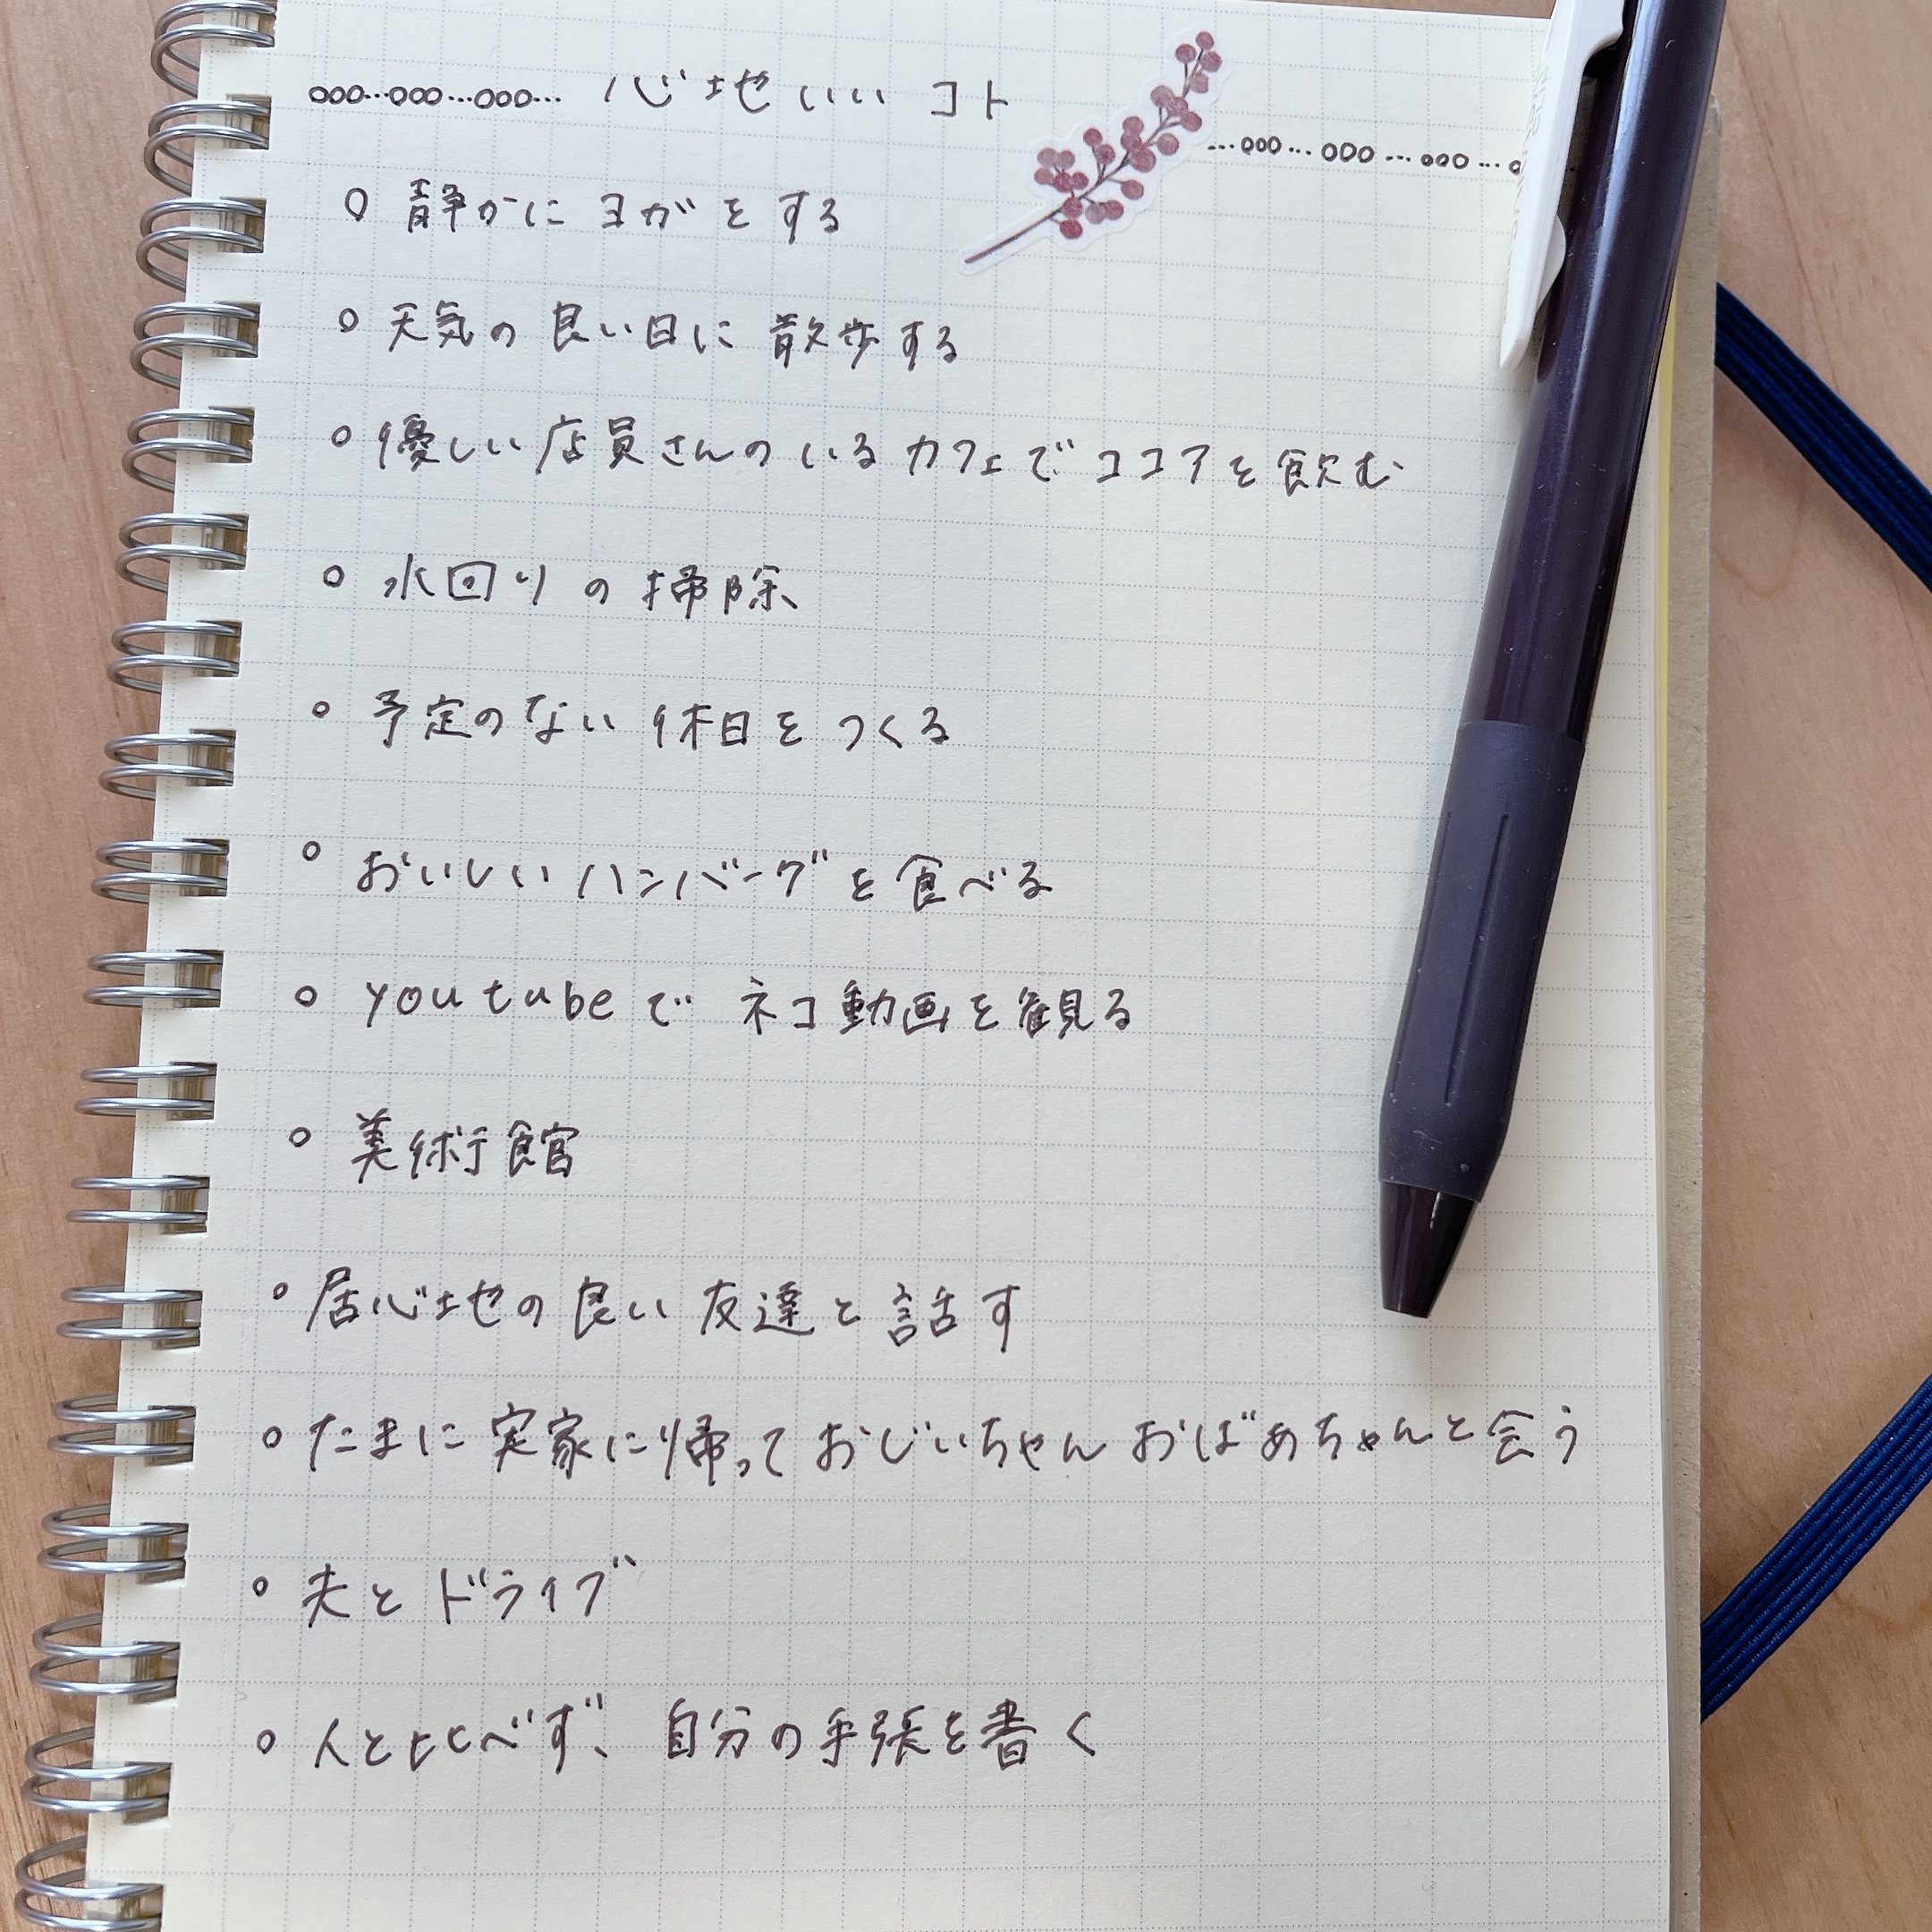 心地いいコト
○ 静かにヨガをする
○ 天気の良い日に散歩する
○ 優しい店員さんのいるカフェでココアを飲む
○ 水回りの掃除
○ 予定のない休日をつくる
○ おいしいハンバーグを食べる
○ youtubeでネコ動画を観る
○ 美術館
○ 居心地の良い友達と話す
○ たまに実家に帰っておじいちゃんおばあちゃんと会う
○ 夫とドライブ
○ 人と比べず、自分の手張を書く